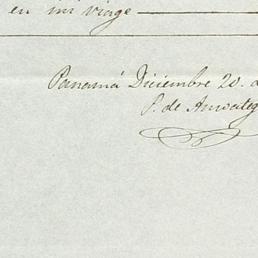 en mi viage
Panamá Diciembre 20. d
P. de Amoateg